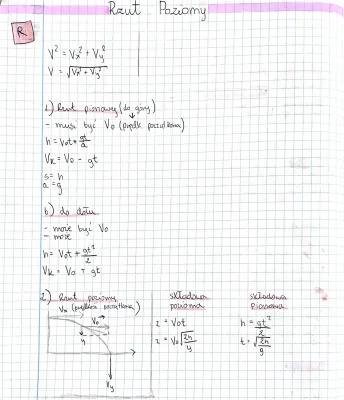 Rzut Poziomy
R
V² = Vx² + Vy²
V = √Vx² + Vy²
1) Rzut pionowy (do góry)
- musi być V0 (prędk. początkowa)
h = V0t +
Vk = V0 - gt
s = h
a = g
b) do dołu
- może być V0
- może
h = V0t + gt²/2
Vk = V0 + gt
2) Rzut poziomy
Vx (prędkość początkowa)
V0
y
Vy
składowa pozioma
z = V0t
z = V0√2h/g
składowa pionowa
h = gt²/2
t = √2h/g